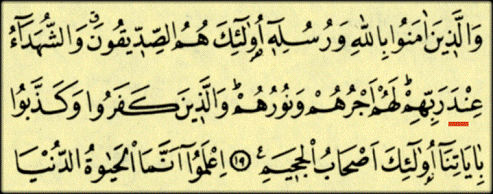 وَالَّذٖينَ اٰمَنُوا بِاللّٰهِ وَرُسُلِهٖٓ اُو۬لٰٓئِكَ هُمُ الصِّدّٖيقُونَۗ وَالشُّهَدَٓاءُ
عِنْدَ رَبِّهِمْؕ لَهُمْ اَجْرُهُمْ وَنُورُهُمْؕ وَالَّذٖينَ كَفَرُوا وَكَذَّبُوا
بِاٰيَاتِنَٓا اُو۬لٰٓئِكَ اَصْحَابُ الْجَحٖيمِࣖ ﴿١٩﴾ اِعْلَمُٓوا اَنَّمَا الْحَيٰوةُ الدُّنْيَا